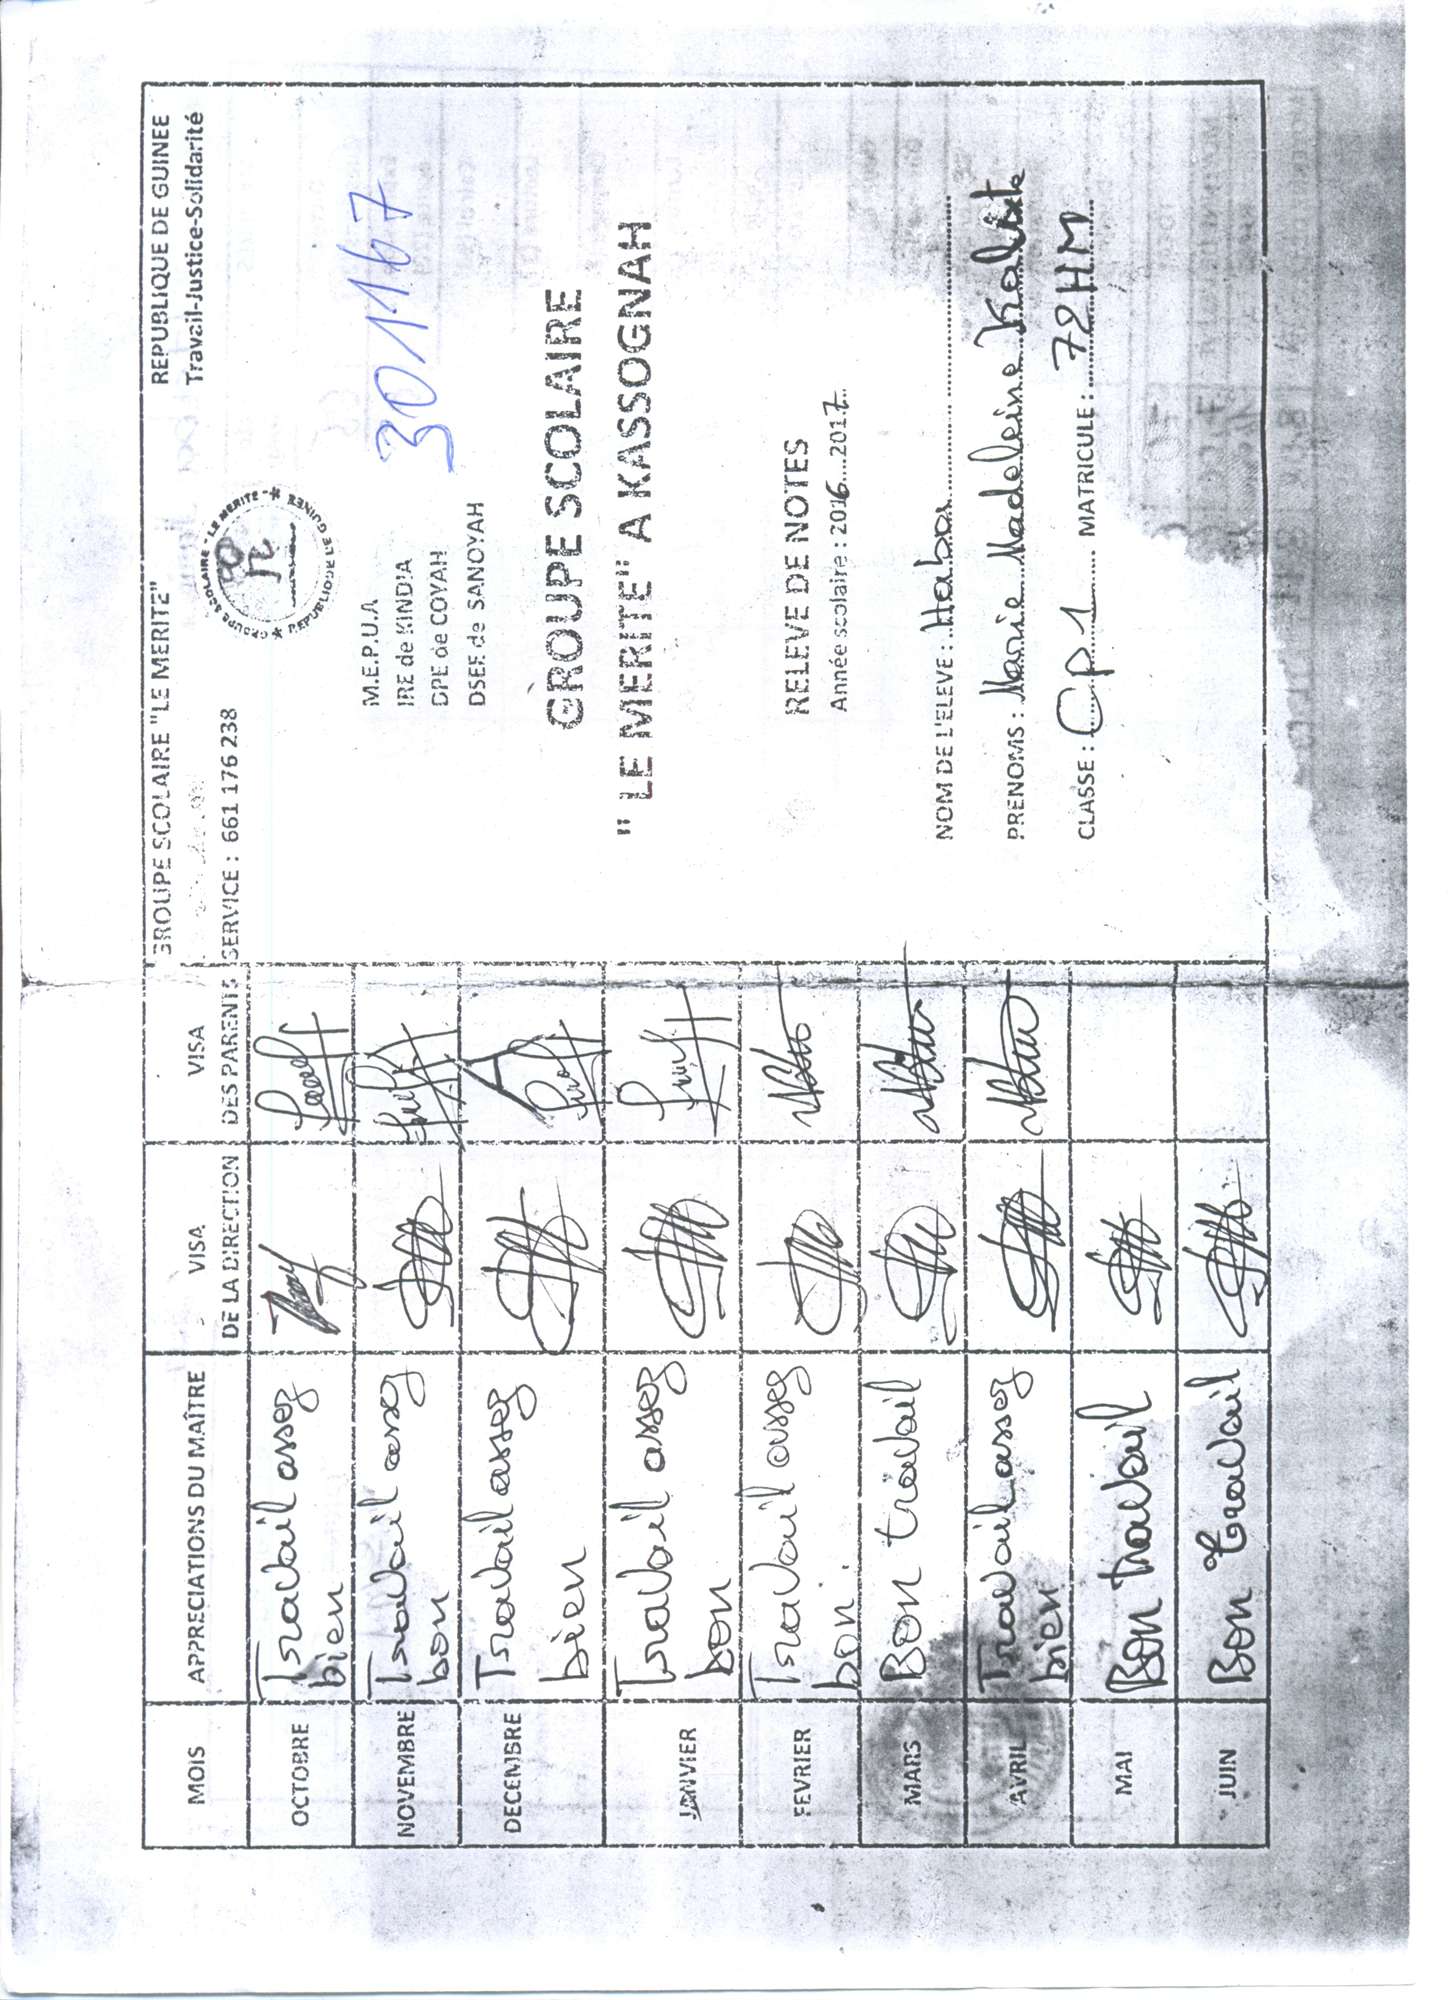 MOIS APPRECIATIONS DU MAÎTRE VISA DE LA DIRECTION VISA DES PARENTS
OCTOBRE Travail assez
bien
NOVEMBRE Travail assez
bon
DECEMBRE Travail assez
bien
JANVIER Travail assez
bon
FEVRIER Travail assez
bon.
MARS Bon travail
AVRIL Travail assez
bien
MAI Bon travail
JUIN Bon travail
GROUPE SCOLAIRE "LE MERITE" REPUBLIQUE DE GUINEE
Travail-Justice-Solidarité
SERVICE : 661 176 238
GROUPE SCOLAIRE - LE MERITE - REPUBLIQUE DE GUINEE
M.E.P.U.A
IRE de KINDIA
DPE de COYAH
DSEE de SANOYAH
301167
GROUPE SCOLAIRE
" LE MERITE" A KASSOGNAH
RELEVE DE NOTES
Année scolaire : 2016...2017
NOM DE L'ELEVE : Haba
PRENOMS : Marie Madeleine Kolixte
CLASSE : Cp1 MATRICULE : 72HM